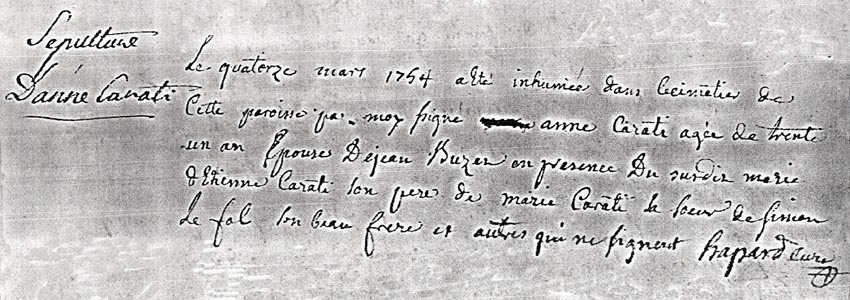 Sepulture
D'anne Carati
Le quatorze mars 1754 a eté inhumée dans le cimetier de
Cette paroisse par moy signé anne Carati agée de trente
un an Epouse De jean Buzen en presence Du surdit marie
d'Etienne Carati son pere de marie Carati sa soeur de Simon
Le fol son beau frere et autres qui ne signent hapard Curé